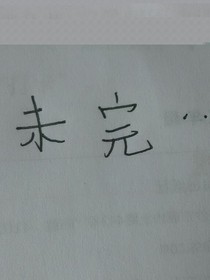 未完..